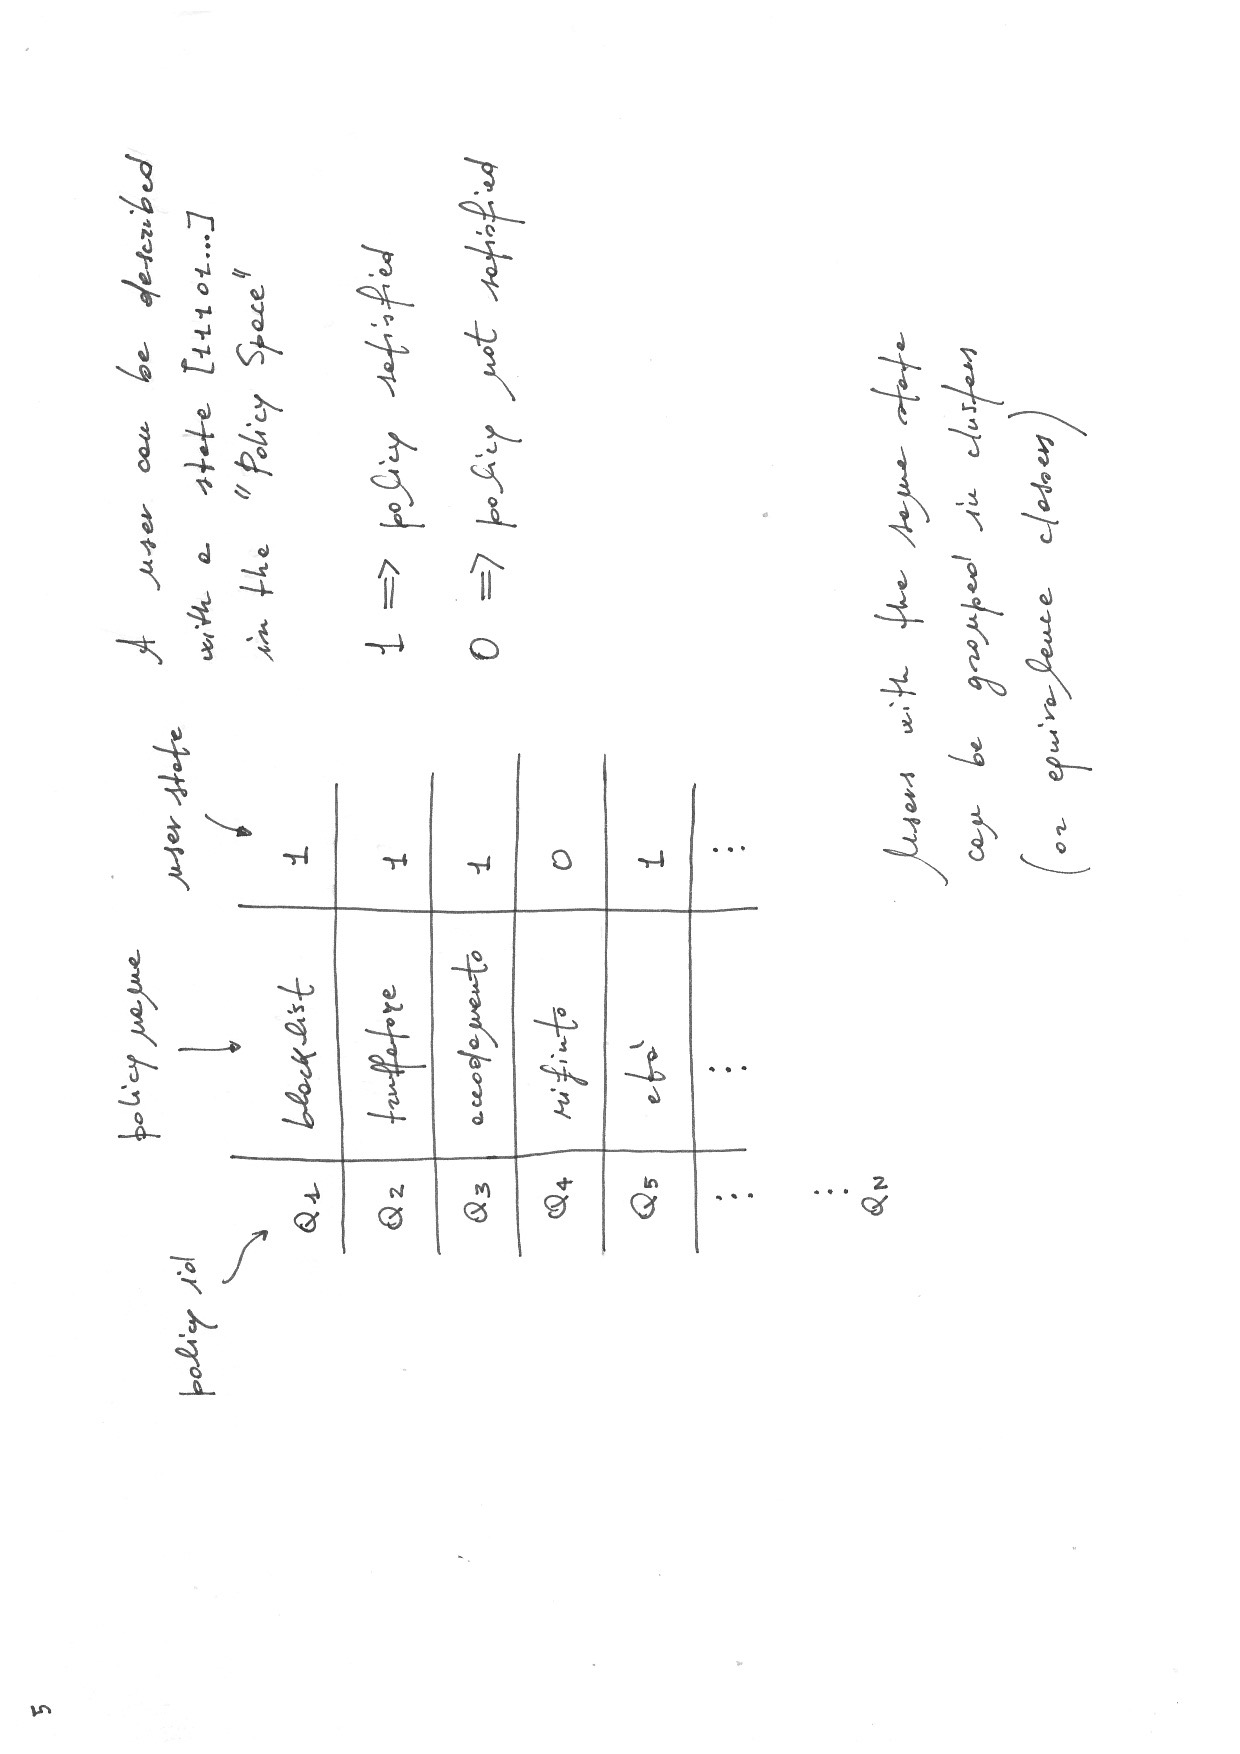 5
policy id
policy name
user state
Q1 blacklist 1
Q2 truffatore 1
Q3 accodamento 1
Q4 rifiuto 0
Q5 età 1
⋮ ⋮ ⋮
⋮
QN
A user can be described
with a state [11101...]
in the "Policy Space"
1 => policy satisfied
0 => policy not satisfied
Users with the same state
can be grouped in clusters
(or equivalence classes)